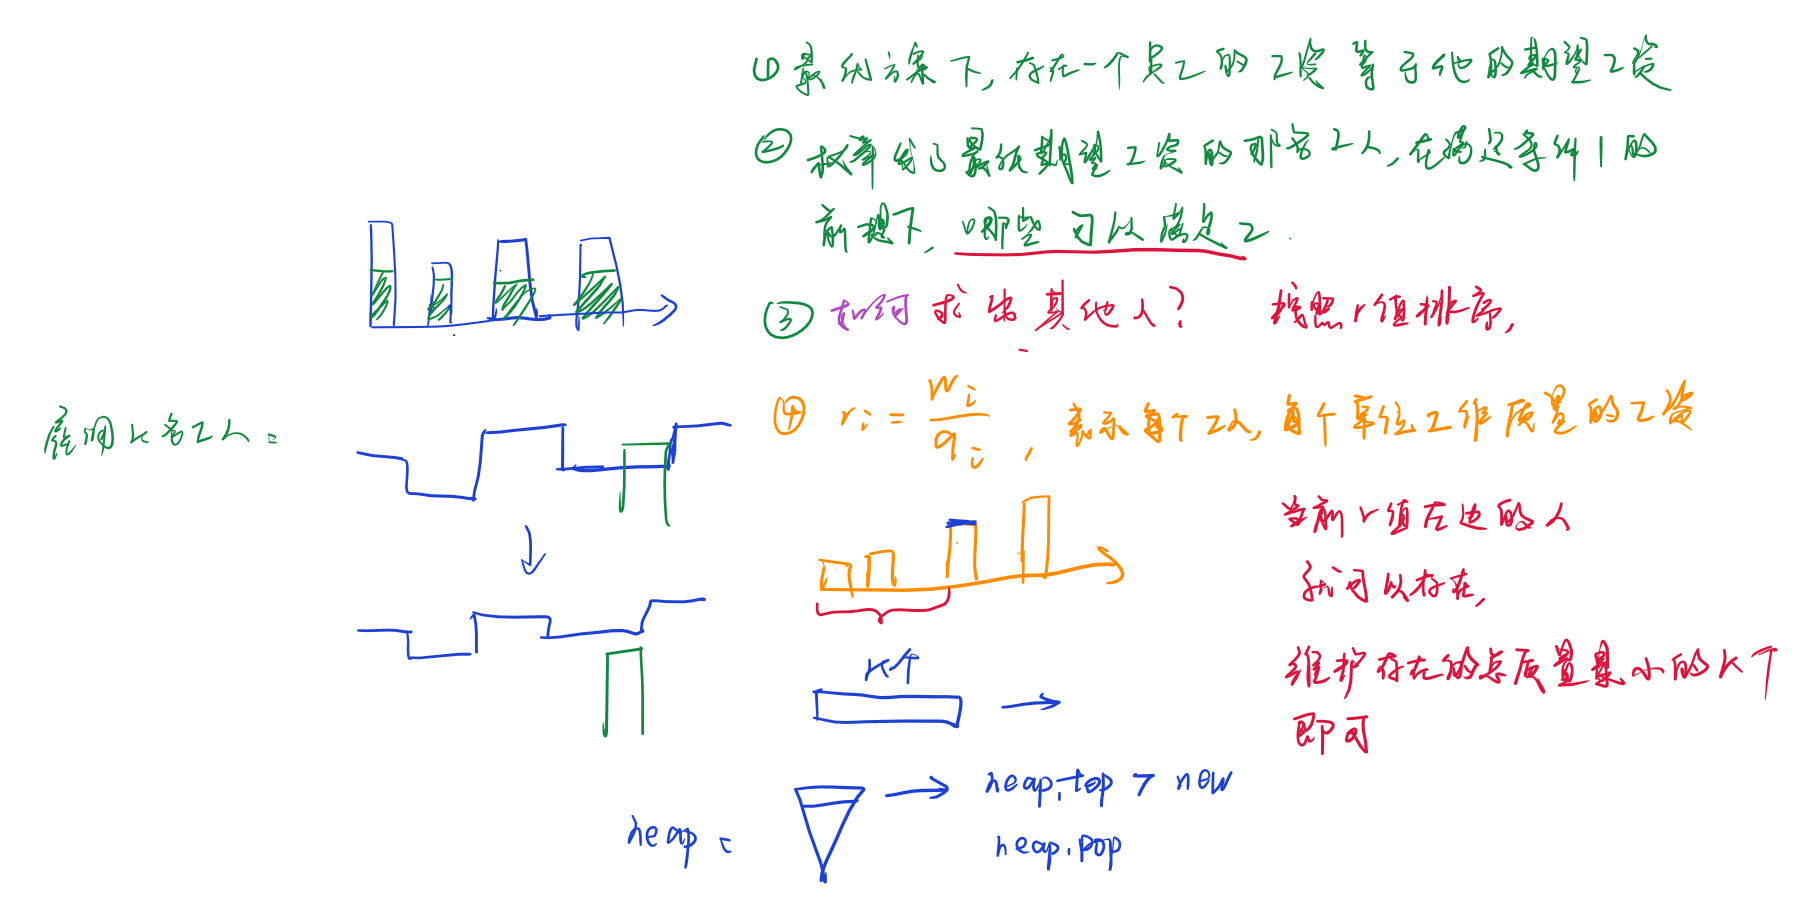 ① 最优方案下,存在一个员工的工资等于他的期望工资
② 枚举成了最低期望工资的那名工人,在满足条件1的
前提下,哪些可以满足2.
③ 如何求出其他人? 按照r值排序,
④ ri = wi/qi, 表示每个工人,每个单位工作质量的工资
雇佣K名工人:
当前r值左边的人
就可以存在,
维护存在的点质量最小的K个
即可
K个
heap.top > new
heap:
heap.pop